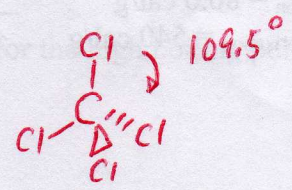 Cl 109.5°
C
Cl Cl
Cl